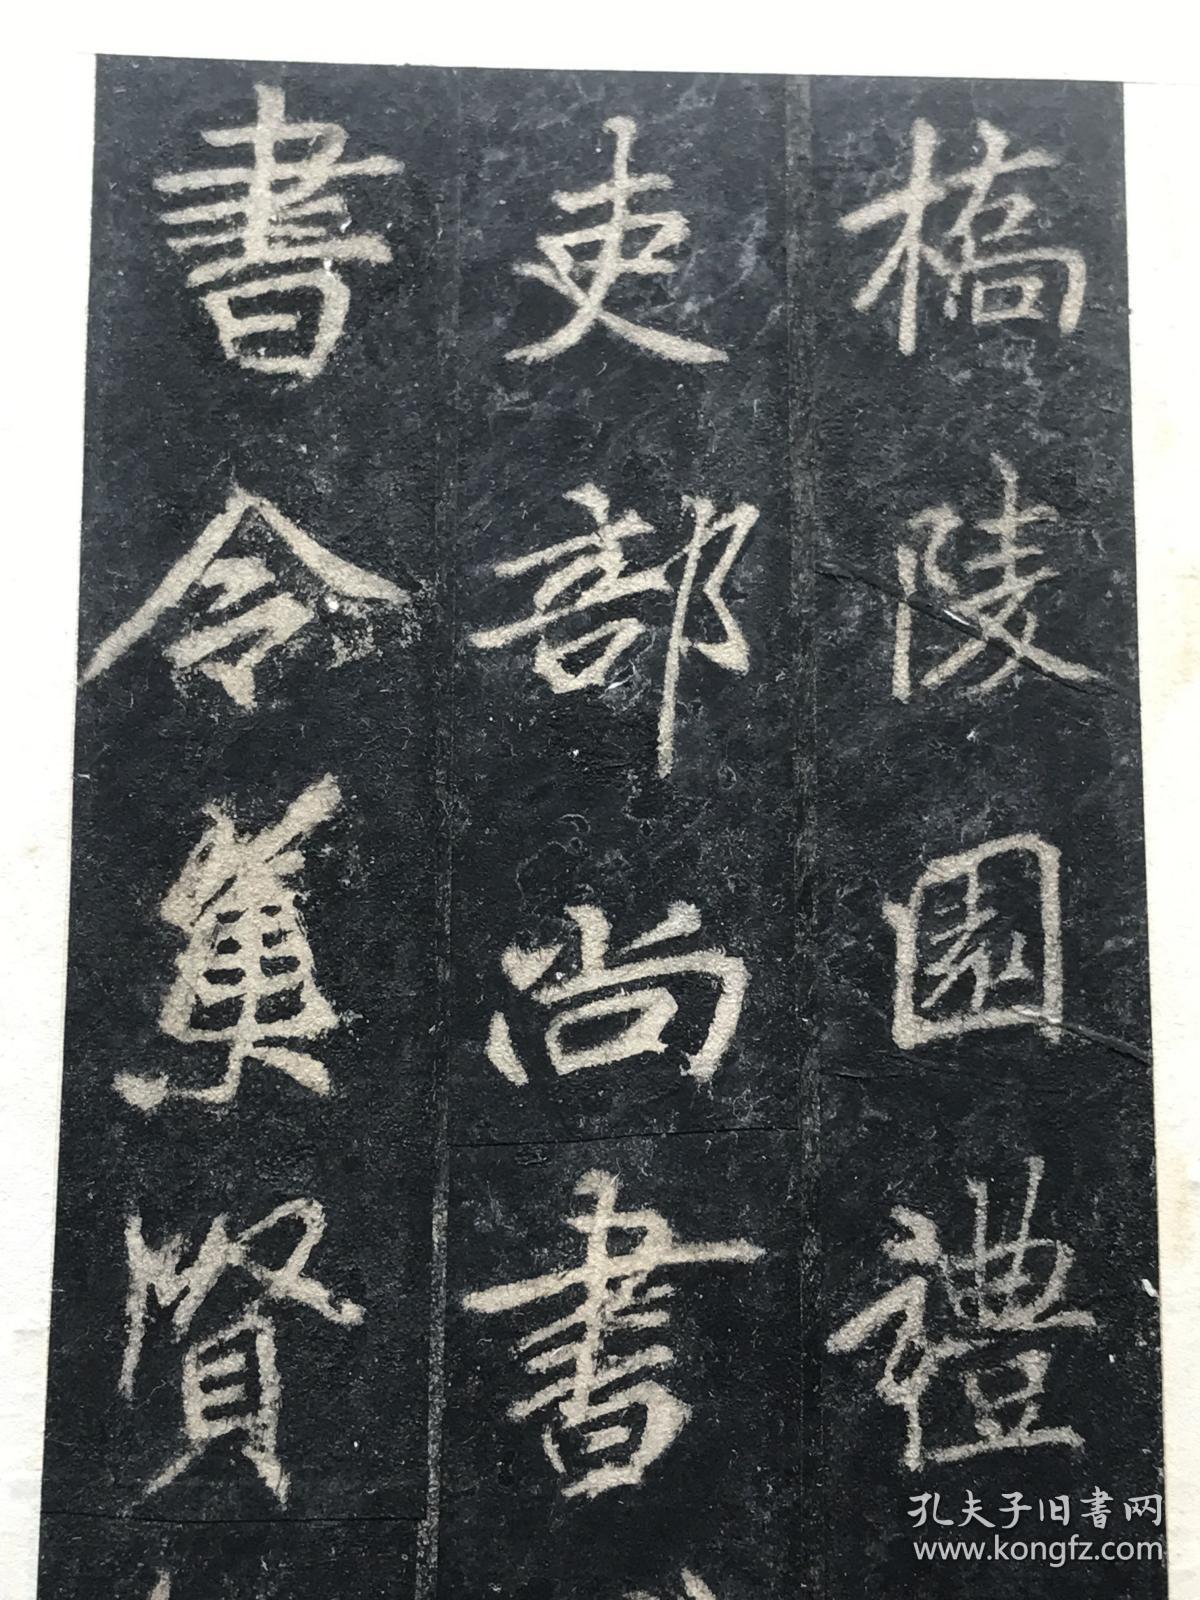 橋陵園禮
吏部尚書
書令集賢
孔夫子旧書网
www.kongfz.com